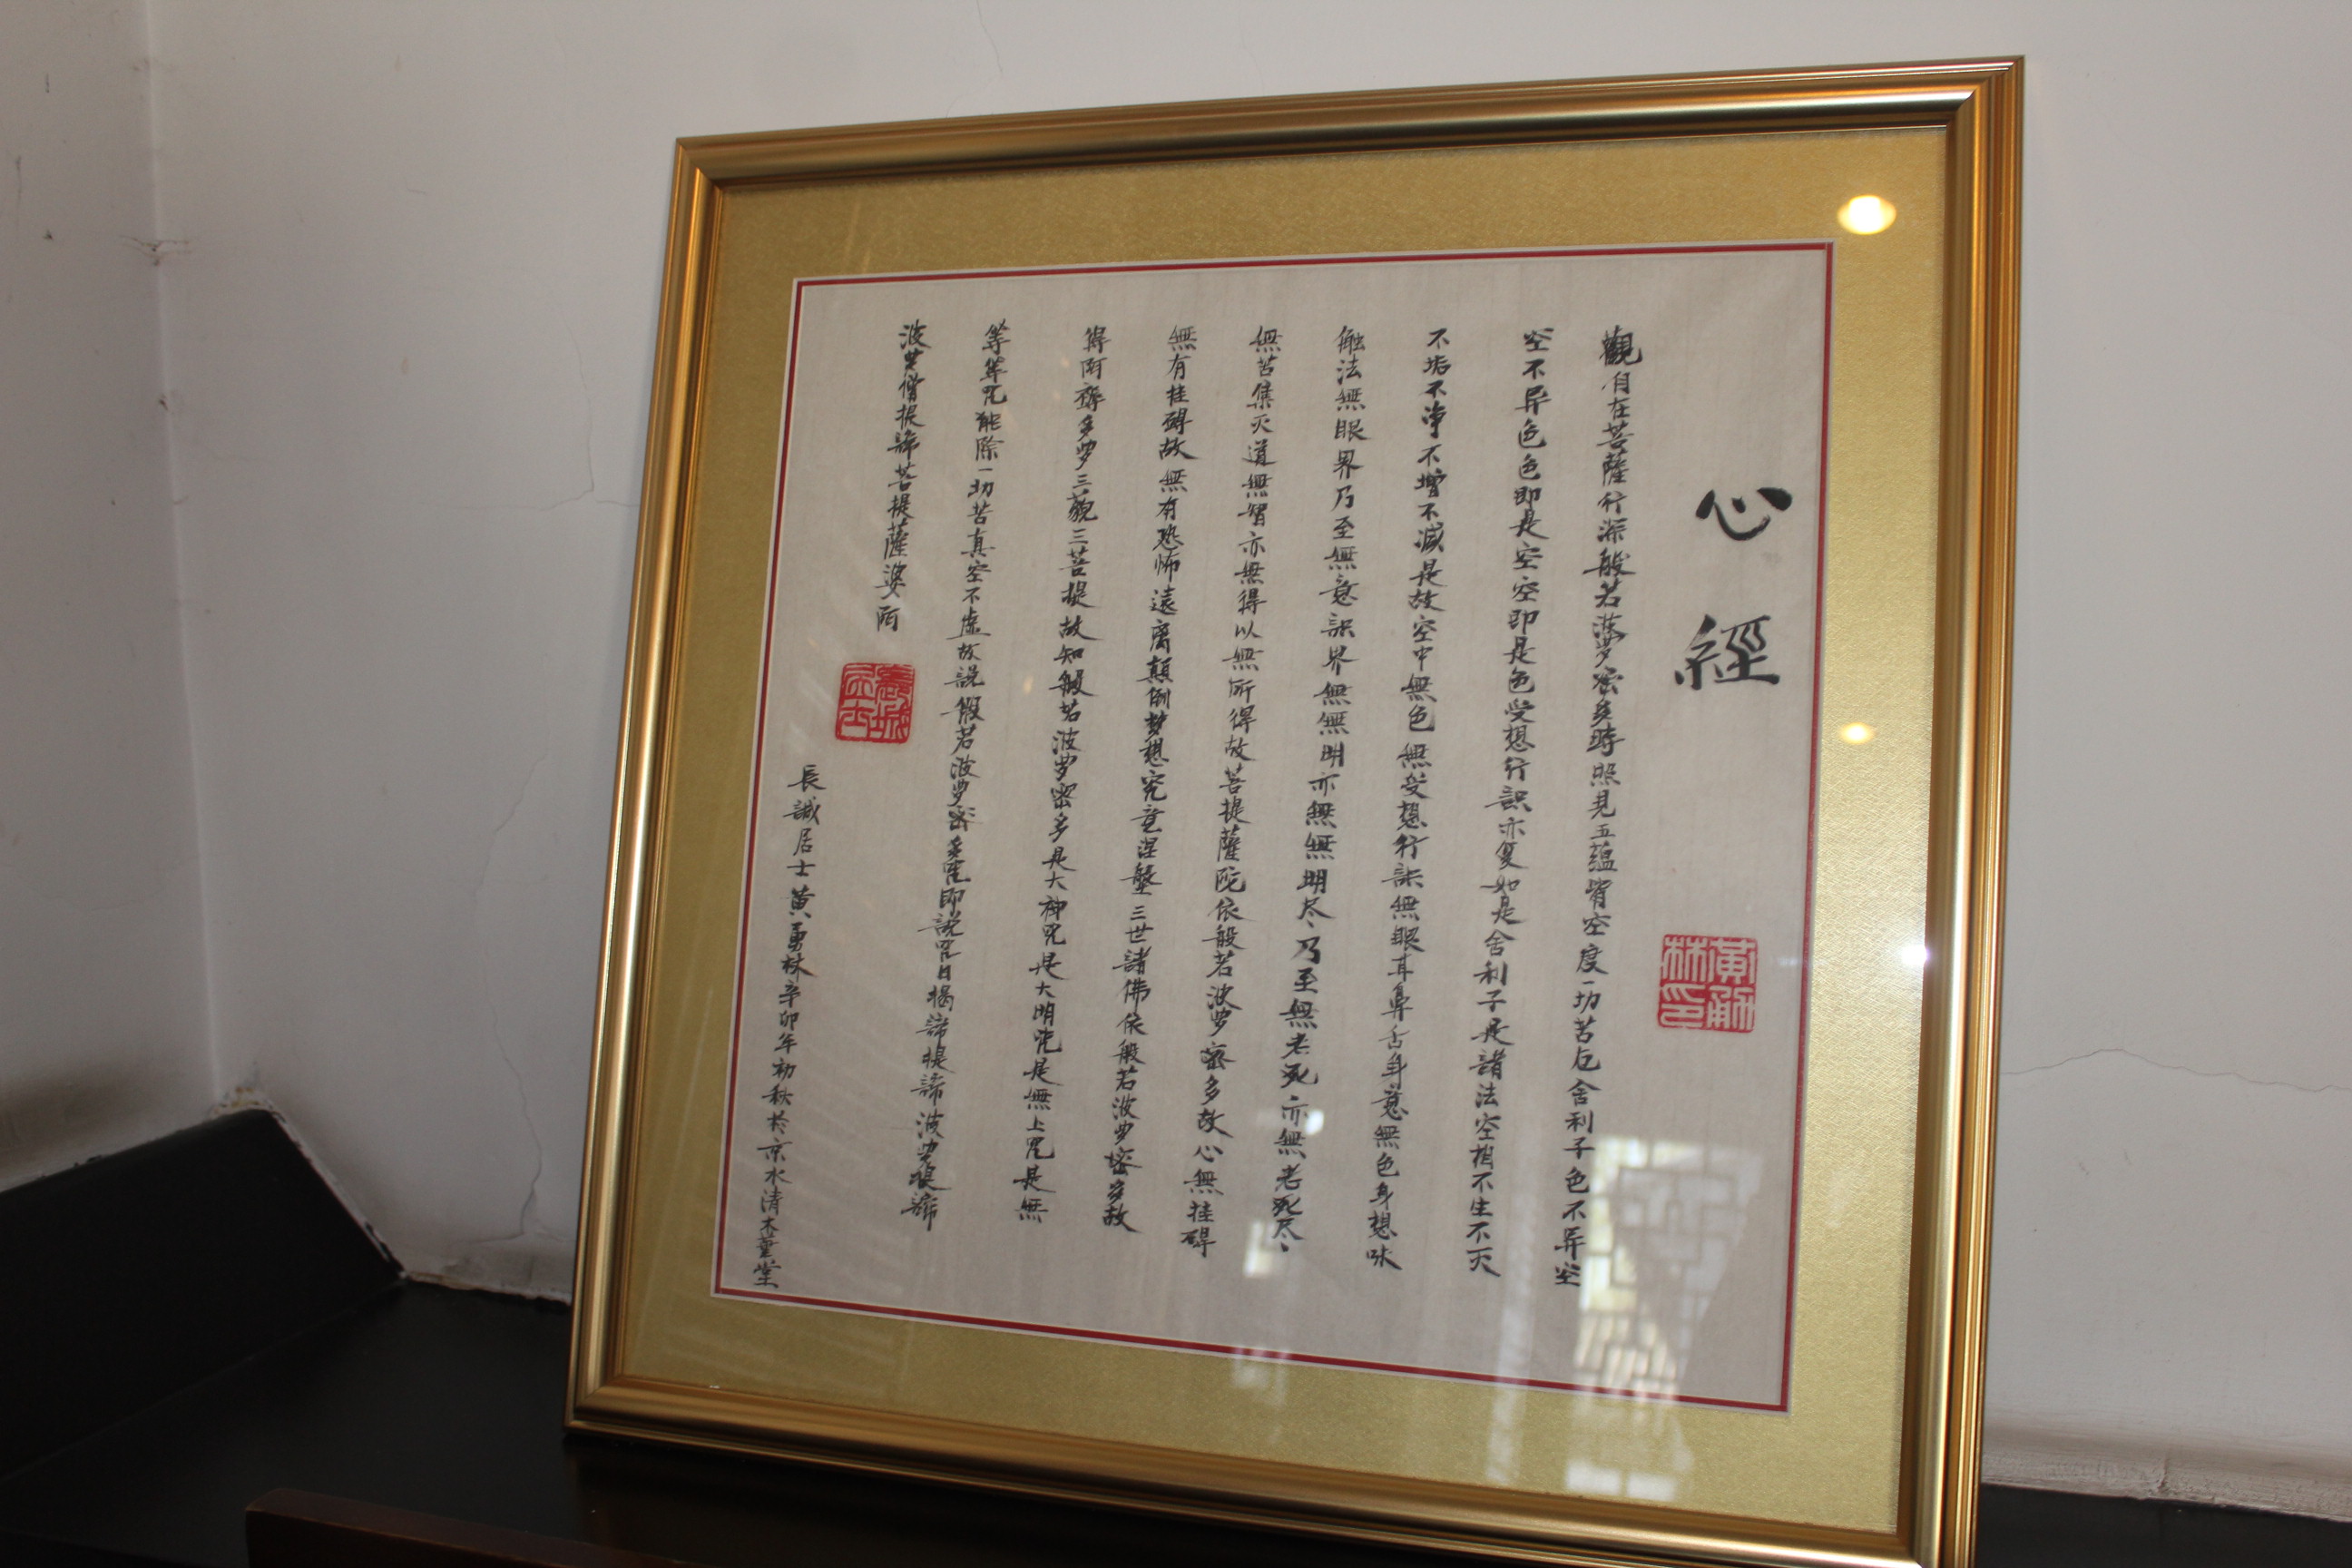 心經
觀自在菩薩行深般若菠罗密多時照見五蕴皆空度一切苦厄舍利子色不异空
空不异色色即是空空即是色受想行識亦复如是舍利子是諸法空相不生不灭
不垢不净不增不减是故空中無色無受想行識無眼耳鼻舌身意無色身想味
触法無眼界乃至無意識界無無明亦無無明尽乃至無老死亦無老死尽
無苦集灭道無智亦無得以無所得故菩提薩陀依般若波罗密多故心無挂碍
無有挂碍故無有恐怖遠离顛倒梦想究竟涅盤三世諸佛依般若波罗密多故
得阿褥多罗三藐三菩提故知般若波罗密多是大神咒是大明咒是無上咒是無
等等咒能除一切苦真空不虚故説般若波罗密多咒即説咒曰揭諦提諦波罗提諦
波罗僧提諦菩提薩婆陌
長誠居士黄勇林辛卯年初秋於京水清木華堂